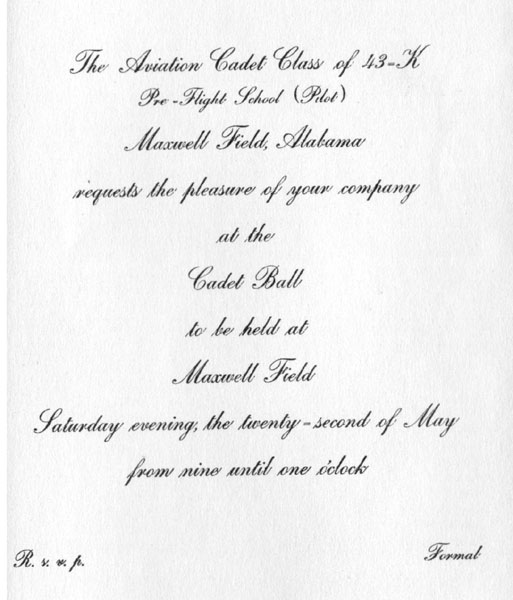 The Aviation Cadet Class of 43-K
Pre-Flight School (Pilot)
Maxwell Field, Alabama
requests the pleasure of your company
at the
Cadet Ball
to be held at
Maxwell Field
Saturday evening, the twenty-second of May
from nine until one o'clock
R. s. v. p.
Formal